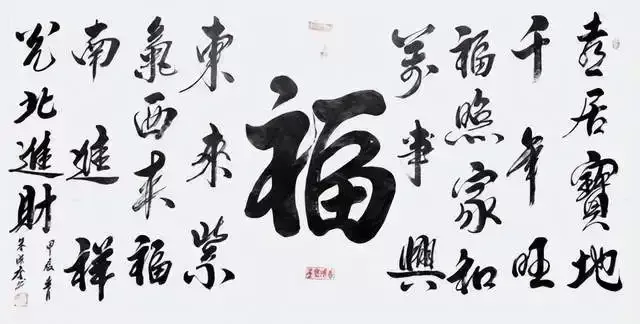 喜居寶地
千年旺
福照家和
萬事興
福
東來紫
氣西来福
南進祥
光北進財
甲辰